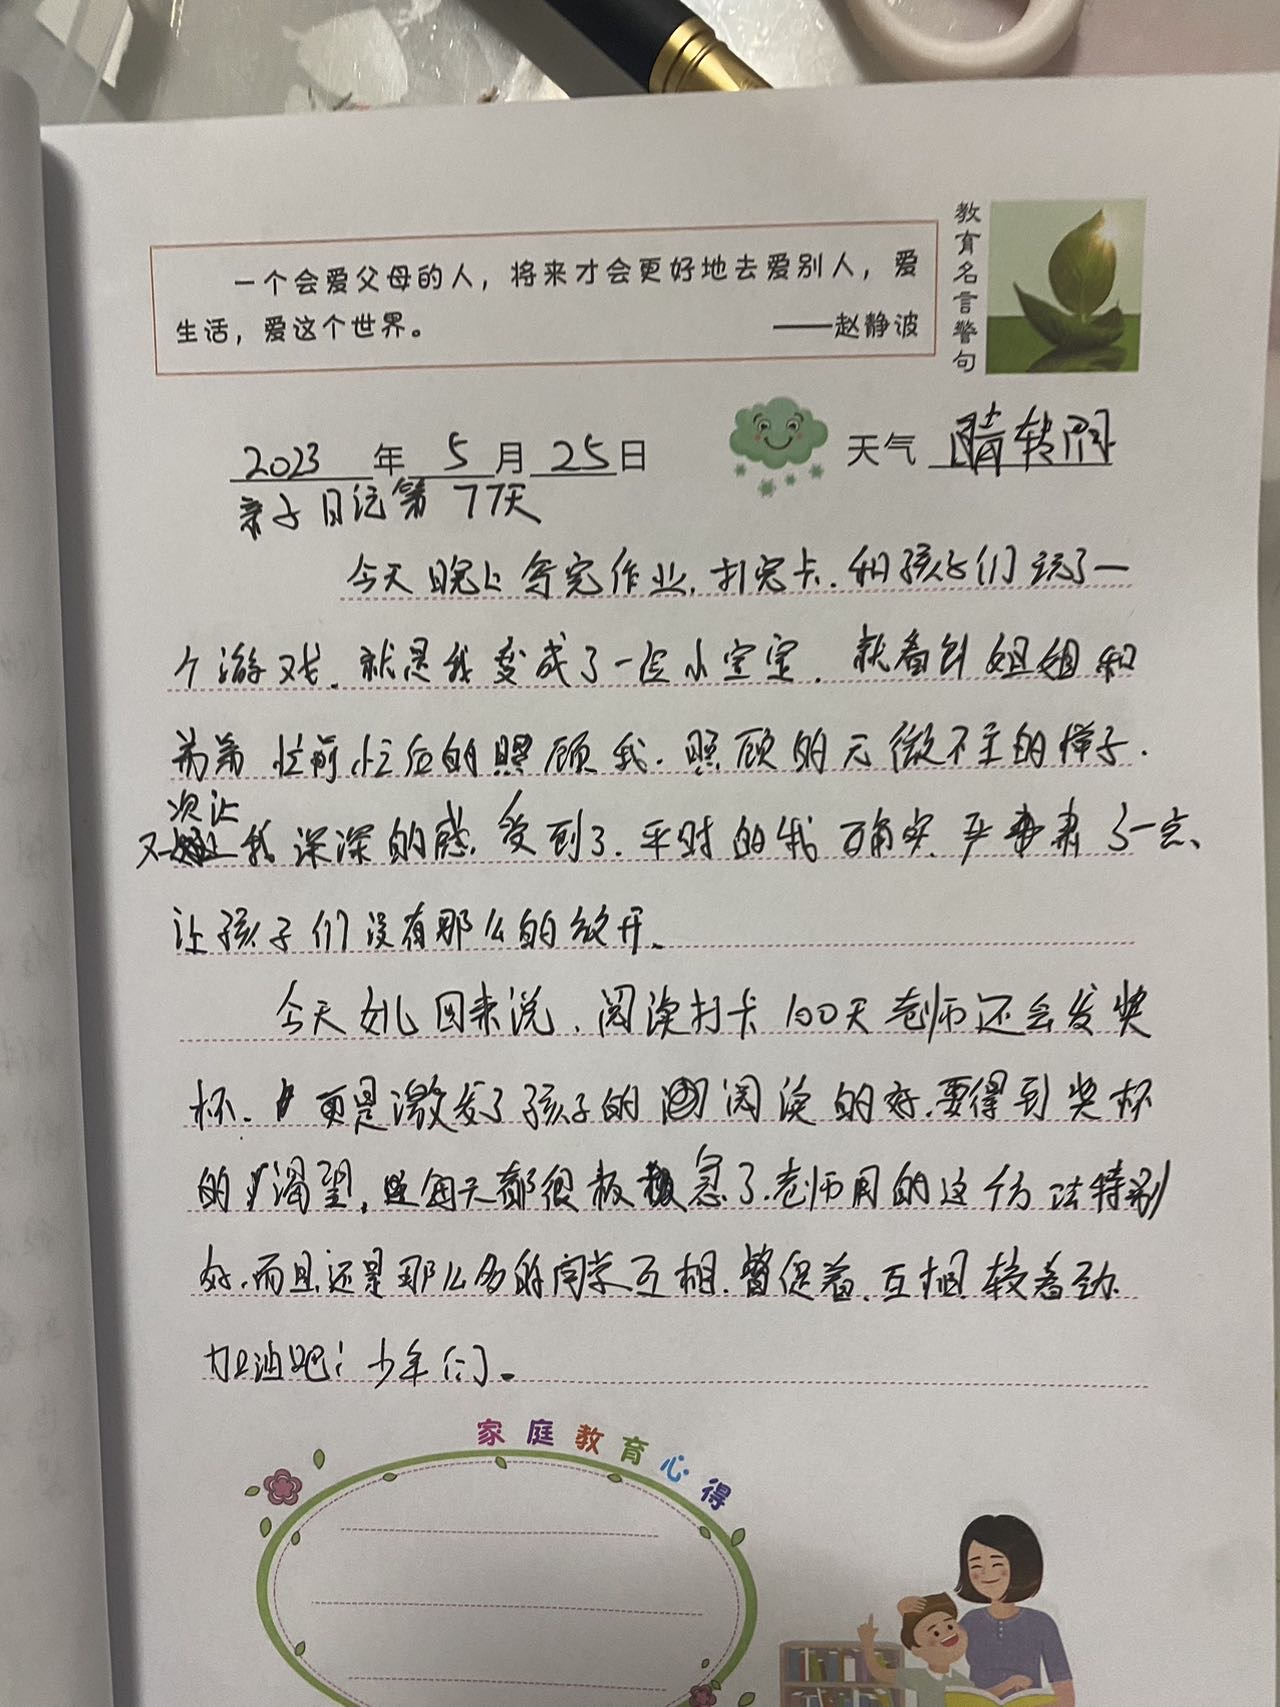 教育名言警句
一个会爱父母的人，将来才会更好地去爱别人，爱
生活，爱这个世界。 ——赵静波
2023 年 5 月 25 日 天气 晴转阴
亲子日记第 77天
今天晚上写完作业，打完卡，和孩子们玩了一
个游戏，就是我变成了一位小宝宝，就看到姐姐和
弟弟忙前忙后的照顾我，照顾的无微不至的样子，
又次让我深深的感受到了，平时的我确实严肃了一点、
让孩子们没有那么的放开。
今天女儿回来说，阅读打卡100天老师还会发奖
杯，更是激发了孩子的阅读的好，要得到奖杯
的渴望，每天都很积极了，老师用的这个方法特别
好，而且还是那么多的同学互相督促着，互相较着劲
加油吧！少年们。
家庭教育心得